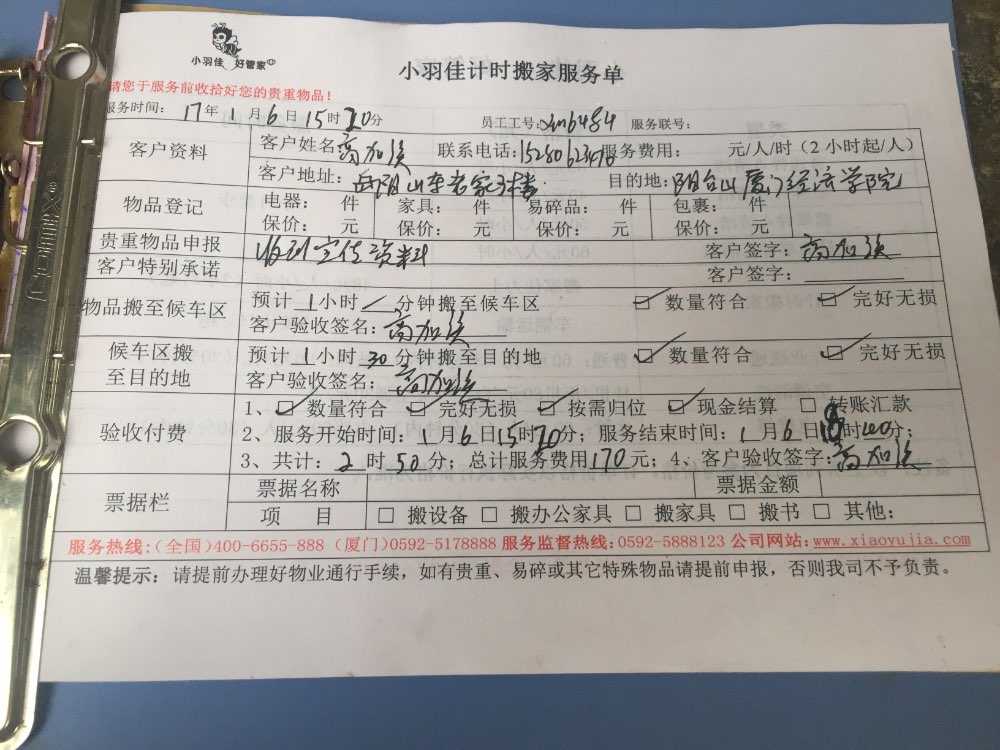 小羽佳 好管家
小羽佳计时搬家服务单
请您于服务前收拾好您的贵重物品!
服务时间: 17年 1月 6日 15时 10分 员工工号: 服务联号:
客户资料 客户姓名: 联系电话: 服务费用: 元/人/时(2小时起/人)
客户地址: 目的地: 厦门经济学院
物品登记 电器: 件 家具: 件 易碎品: 件 包裹: 件
保价: 元 保价: 元 保价: 元 保价: 元
贵重物品申报 收到宣传资料 客户签字:
客户特别承诺 客户签字:
物品搬至候车区 预计 1小时 / 分钟搬至候车区 ☑ 数量符合 ☑ 完好无损
客户验收签名:
候车区搬至目的地 预计 1小时 30分钟搬至目的地 ☑ 数量符合 ☑ 完好无损
客户验收签名:
验收付费 1、☑ 数量符合 ☑ 完好无损 ☑ 按需归位 ☑ 现金结算 □ 转账汇款
2、服务开始时间: 1月6日15时10分; 服务结束时间: 1月6日18时00分;
3、共计: 2时50分; 总计服务费用170元; 4、客户验收签字:
票据栏 票据名称 票据金额
项 目 □ 搬设备 □ 搬办公家具 □ 搬家具 □ 搬书 □ 其他:
服务热线:(全国)400-6655-888 (厦门)0592-5178888 服务监督热线:0592-5888123 公司网站:www.xiaoyujia.com
温馨提示: 请提前办理好物业通行手续,如有贵重、易碎或其它特殊物品请提前申报,否则我司不予负责。